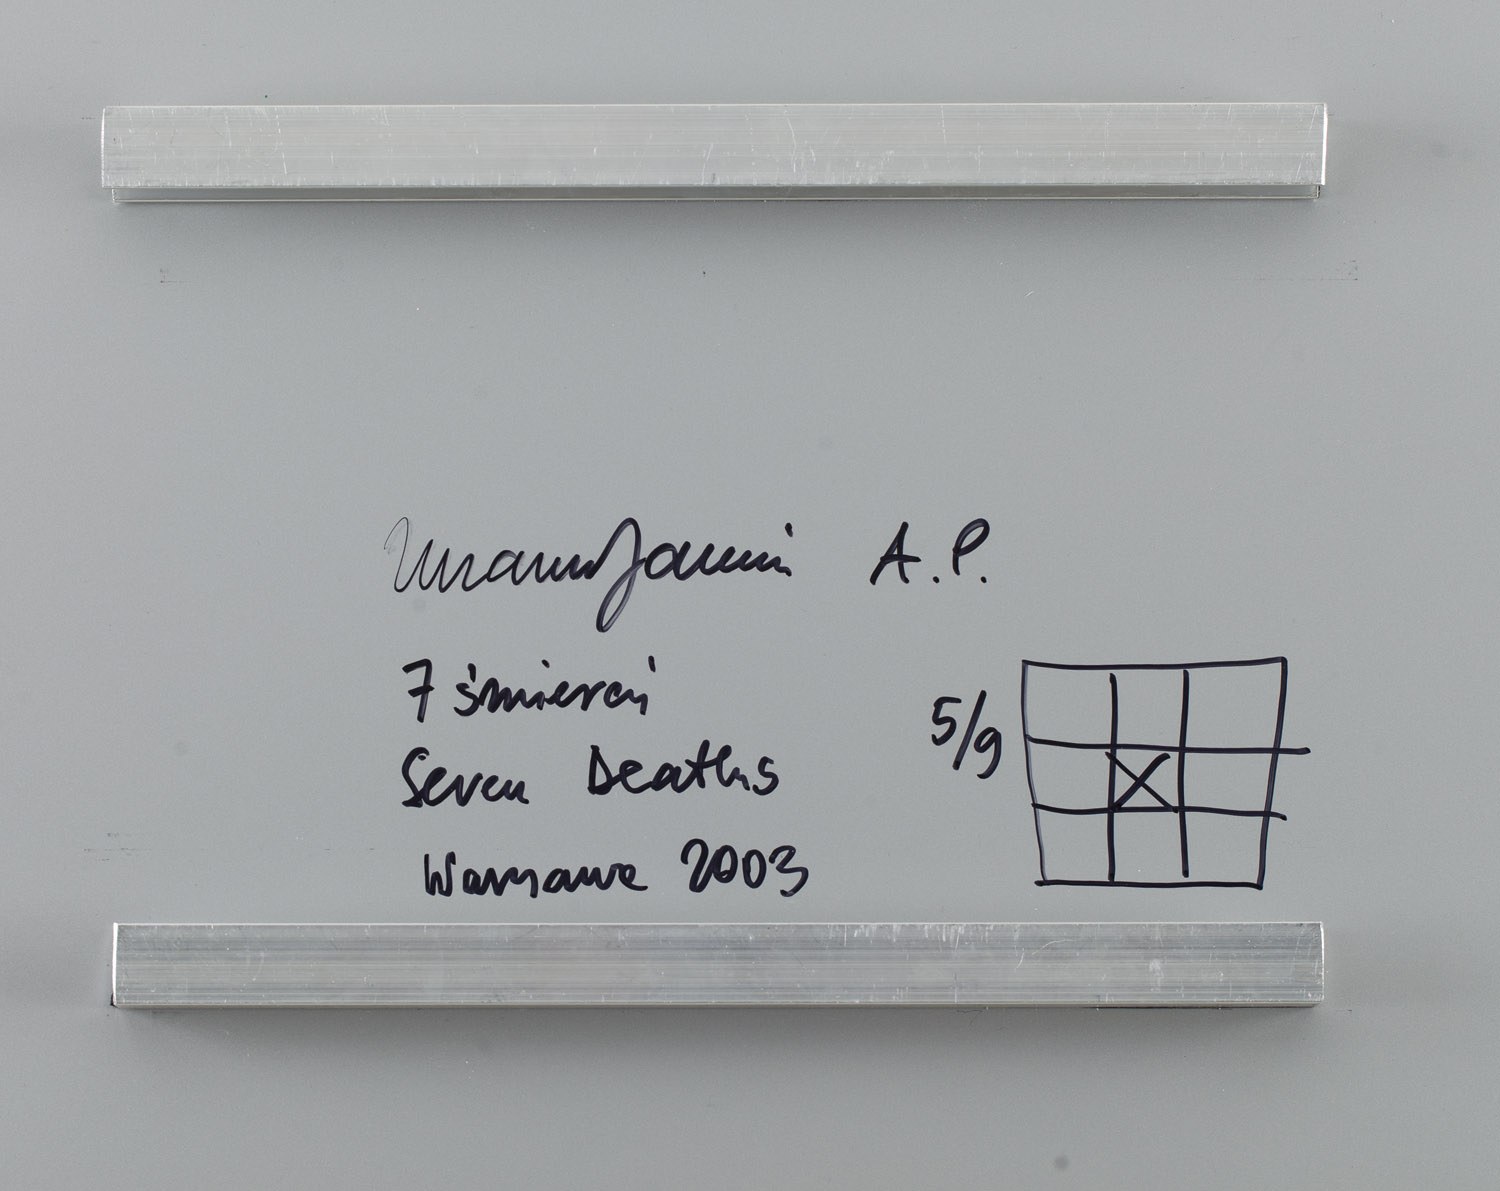 A.P.
7 śmierci
Seven Deaths
Warszawa 2003
5/9